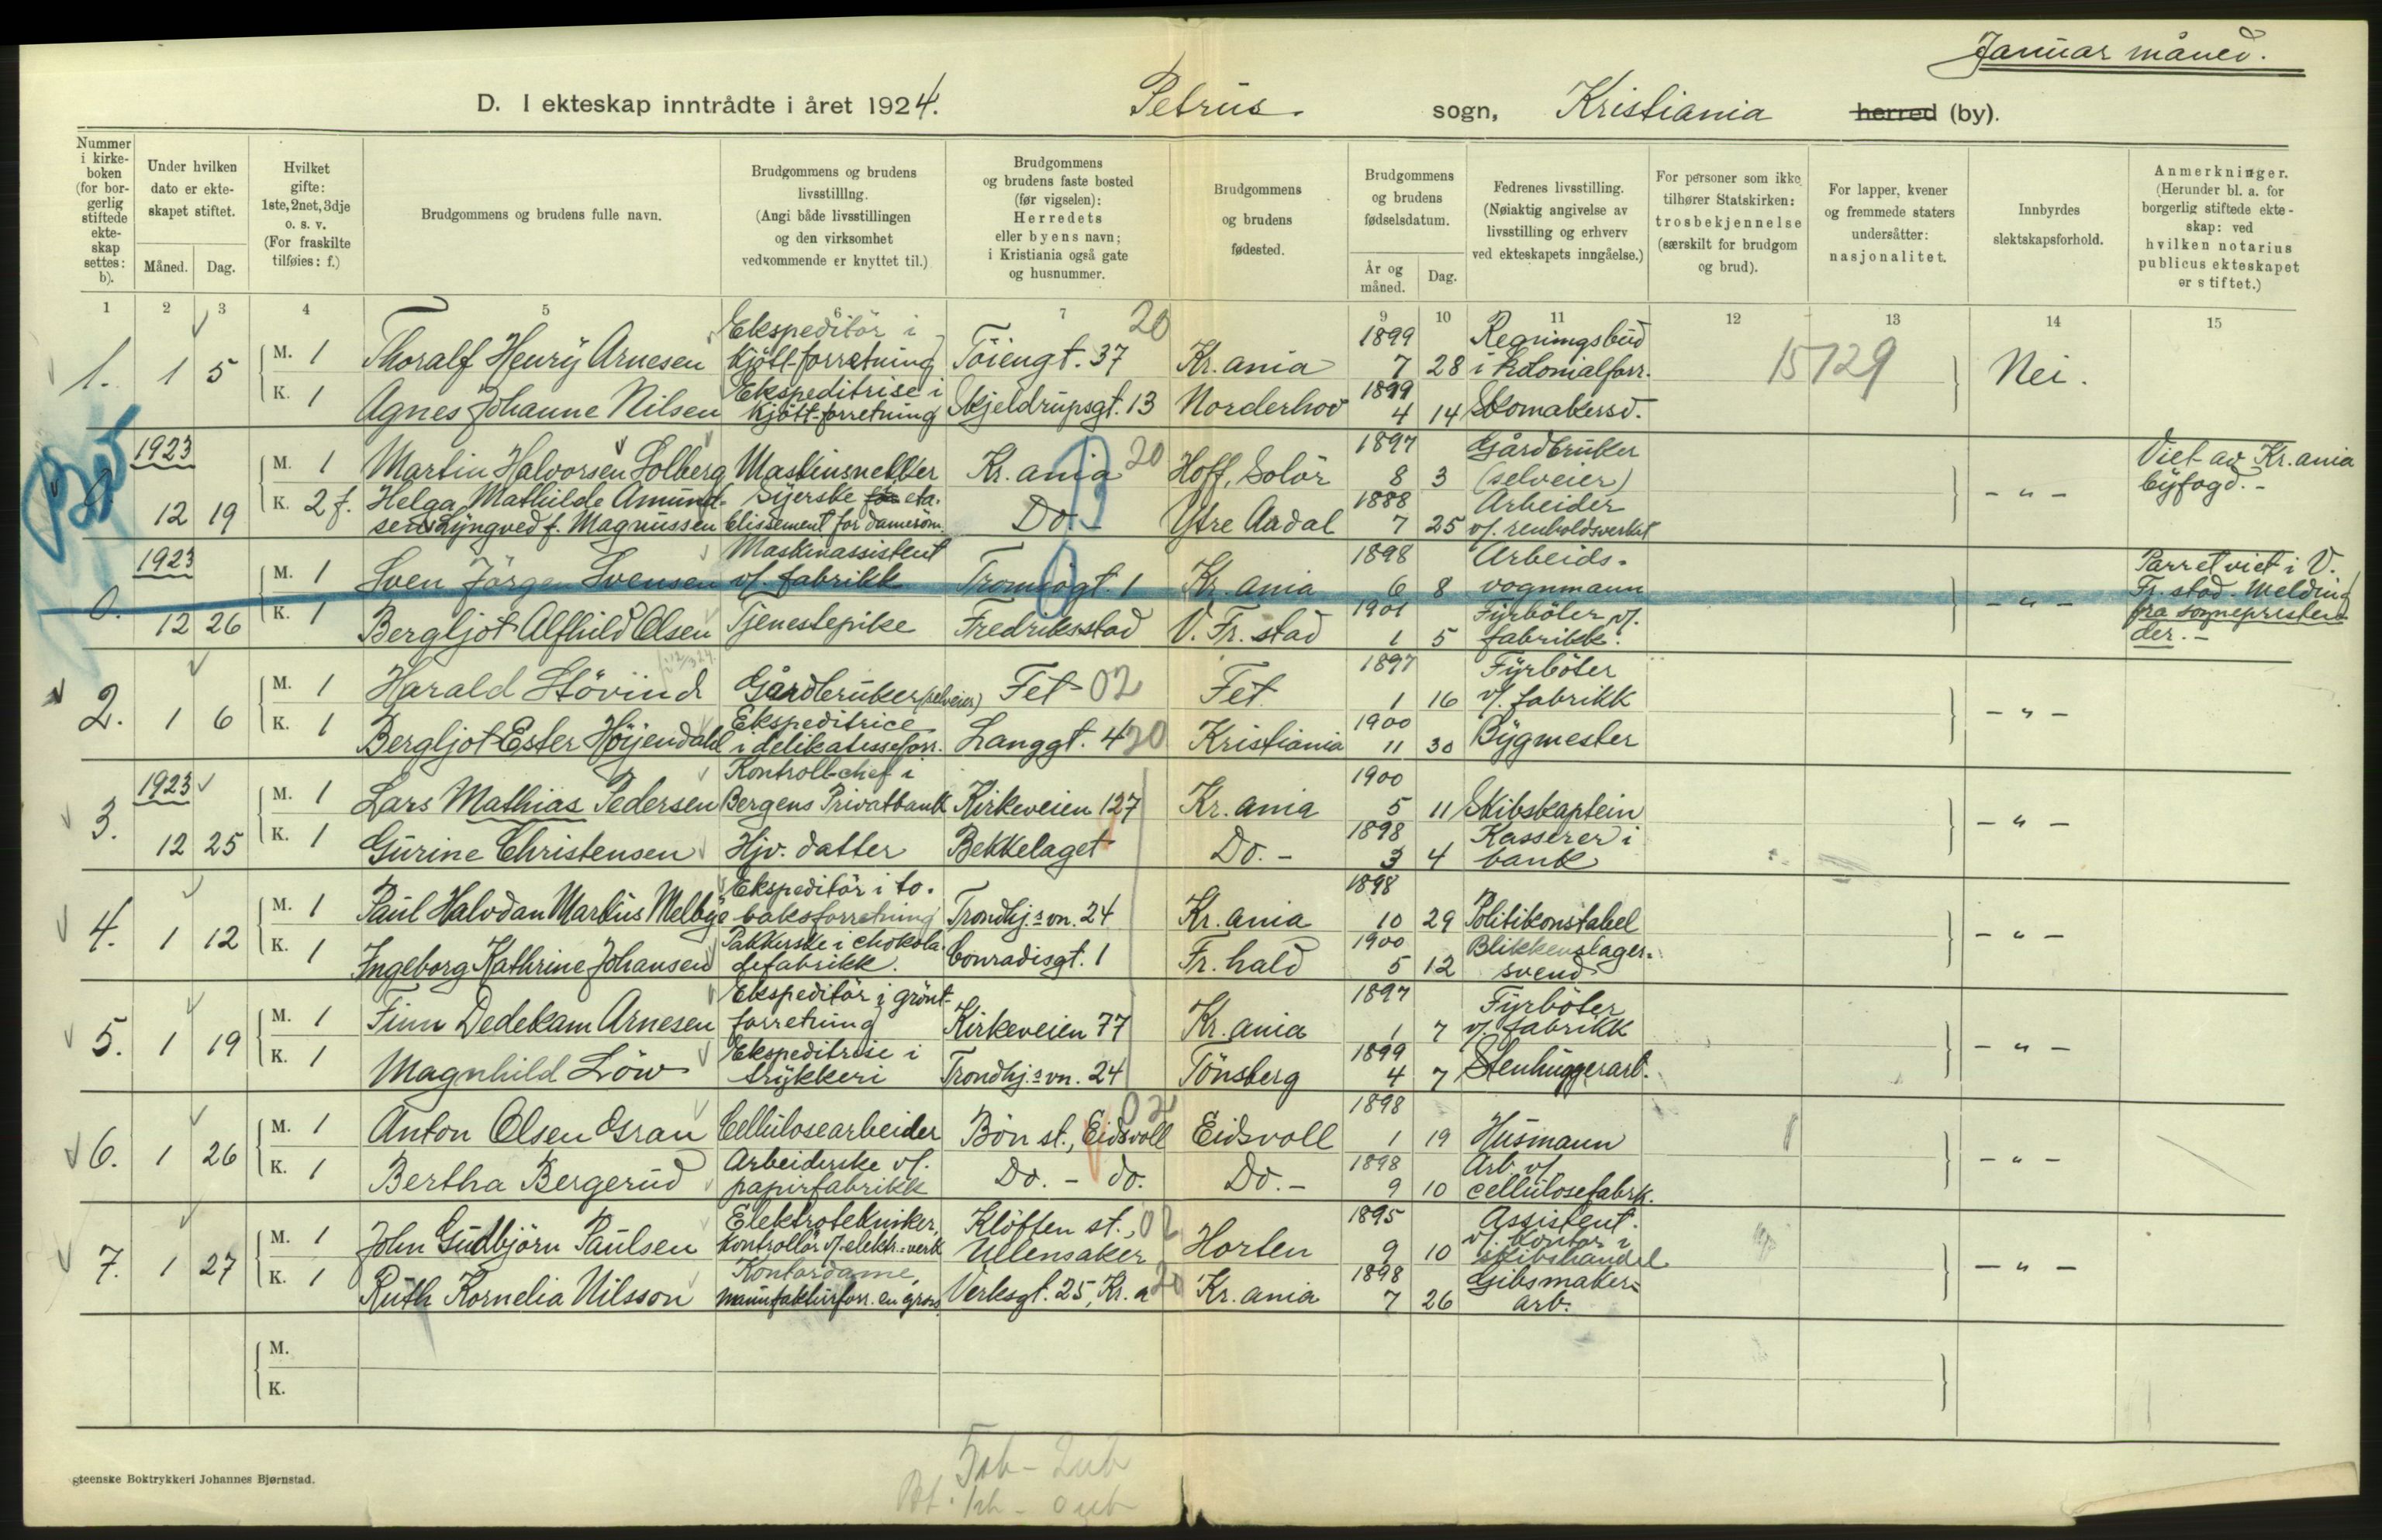 Januar måned.
D. I ekteskap inntrådte i året 1924.
Petrus sogn, Kristiania herred (by).
Nummer i kirke-boken (for bor-gerlig stiftede ekte-skap settes: b).
Under hvilken dato er ekte-skapet stiftet.
Måned. Dag.
Hvilket gifte: 1ste, 2net, 3dje o. s. v. (For fraskilte tilføies: f.)
Brudgommens og brudens fulle navn.
Brudgommens og brudens livsstilllng. (Angi både livsstillingen og den virksomhet vedkommende er knyttet til.)
Brudgommens og brudens faste bosted (før vigselen): Herredets eller byens navn; i Kristiania også gate og husnummer.
Brudgommens og brudens fødested.
Brudgommens og brudens fødselsdatum.
År og måned. Dag.
Fedrenes livsstilling. (Nøiaktig angivelse av livsstilling og erhverv ved ekteskapets inngåelse.)
For personer som ikke tilhører Statskirken: trosbekjennelse (særskilt for brudgom og brud).
For lapper, kvener og fremmede staters undersåtter: nasjonalitet.
Innbyrdes slektskapsforhold.
Anmerkninger. (Herunder bl. a. for borgerlig stiftede ekte-skap: ved hvilken notarius publicus ekteskapet er stiftet.)
1 2 3 4 5 6 7 9 10 11 12 13 14 15
1. 1 5 M. 1 Thoralf Henry Arnesen Ekspeditör i kjött-forretning Töiengt. 37 20 Kr.ania 1899 7 28 Regningsbud i kolonialforr. 15729 Nei.
K. 1 Agnes Johanne Nilsen Ekspeditrise i kjött-forretning Skjeldrupsgt. 13 Norderhov 1899 4 14 Skomakersv.
1923 12 19 M. 1 Martin Halvorsen Solberg Maskinsnekker Kr.ania 20 Hoff, Solör 1897 8 3 Gårdbruker (selveier) - " - Viet av Kr.ania byfogd.-
K. 2 f. Helga Mathilde Amund-sen Lyngved f. Magnussen Syerske for eta-blissement for damerom. Do.- Ytre Aadal 1888 7 25 Arbeider v/. renholdsverket
0. 1923 12 26 M. 1 Sven Jörgen Svensen Maskinassistent v/. fabrikk Tromsögt. 1 Kr.ania 1898 6 8 Arbeids-vognmann - " - Parret viet i V. Fr.stad. Melding fra sognepresten der.-
K. 1 Bergljot Alfhild Olsen Tjenestepike Fredriksstad V. Fr.stad 1901 1 5 Fyrböter v/. fabrikk.
2. 1 6 M. 1 Harald Stövind Gårdbruker (selveier) Fet 02 Fet 1897 1 16 Fyrböter v/. fabrikk - " -
K. 1 Bergljot Ester Höyjendahl Ekspeditrice i delikatesseforr. Langgt. 4 20 Kristiania 1900 11 30 Bygmester
3. 1923 12 25 M. 1 Lars Mathias Pedersen Kontroll-chef i Bergens Privatbank Kirkeveien 127 Kr.ania 1900 5 11 Skibskaptein - " -
K. 1 Gurine Christensen Hjv. datter Bekkelaget Do.- 1898 3 4 Kasserer i bank
4. 1 12 M. 1 Paul Halvdan Markus Melbye Ekspeditör i to-baksforretning Trondhj.svn. 24 Kr.ania 1898 10 29 Politikonstabel - " -
K. 1 Ingeborg Kathrine Johansen Pakkerske i chokola-defabrikk. Conradisgt. 1 Fr.hald 1900 5 12 Blikkenslager-svend
5. 1 19 M. 1 Finn Dedekam Arnesen Ekspeditör i grönt-forretning Kirkeveien 77 Kr.ania 1897 1 7 Fyrböter v/. fabrikk - " -
K. 1 Magnhild Löw Ekspeditrise i trykkeri Trondhj.svn. 24 Tönsberg 1899 4 7 Stenhuggerarb.
6. 1 26 M. 1 Anton Olsen Gran Cellulosearbeider Bön st., Eidsvoll 02 Eidsvoll 1898 1 19 Husmann - " -
K. 1 Bertha Bergerud Arbeiderske v/. papirfabrikk Do. - do. Do.- 1898 9 10 Arb. v/. cellulosefabrk.
7. 1 27 M. 1 John Gudbjörn Paulsen Elektrotekniker, kontrollör v/. elektr.-verk Klöften st., Ullensaker 02 Horten 1895 9 10 Assistent v/. kontor i skibshandel - " -
K. 1 Ruth Kornelia Nilsson Kontordame, manufakturforr. en gros Verksgt. 25, Kr.a 20 Kr.ania 1898 7 26 Gibsmaker-arb.
M.
K.
gteenske Boktrykkeri Johannes Bjørnstad.